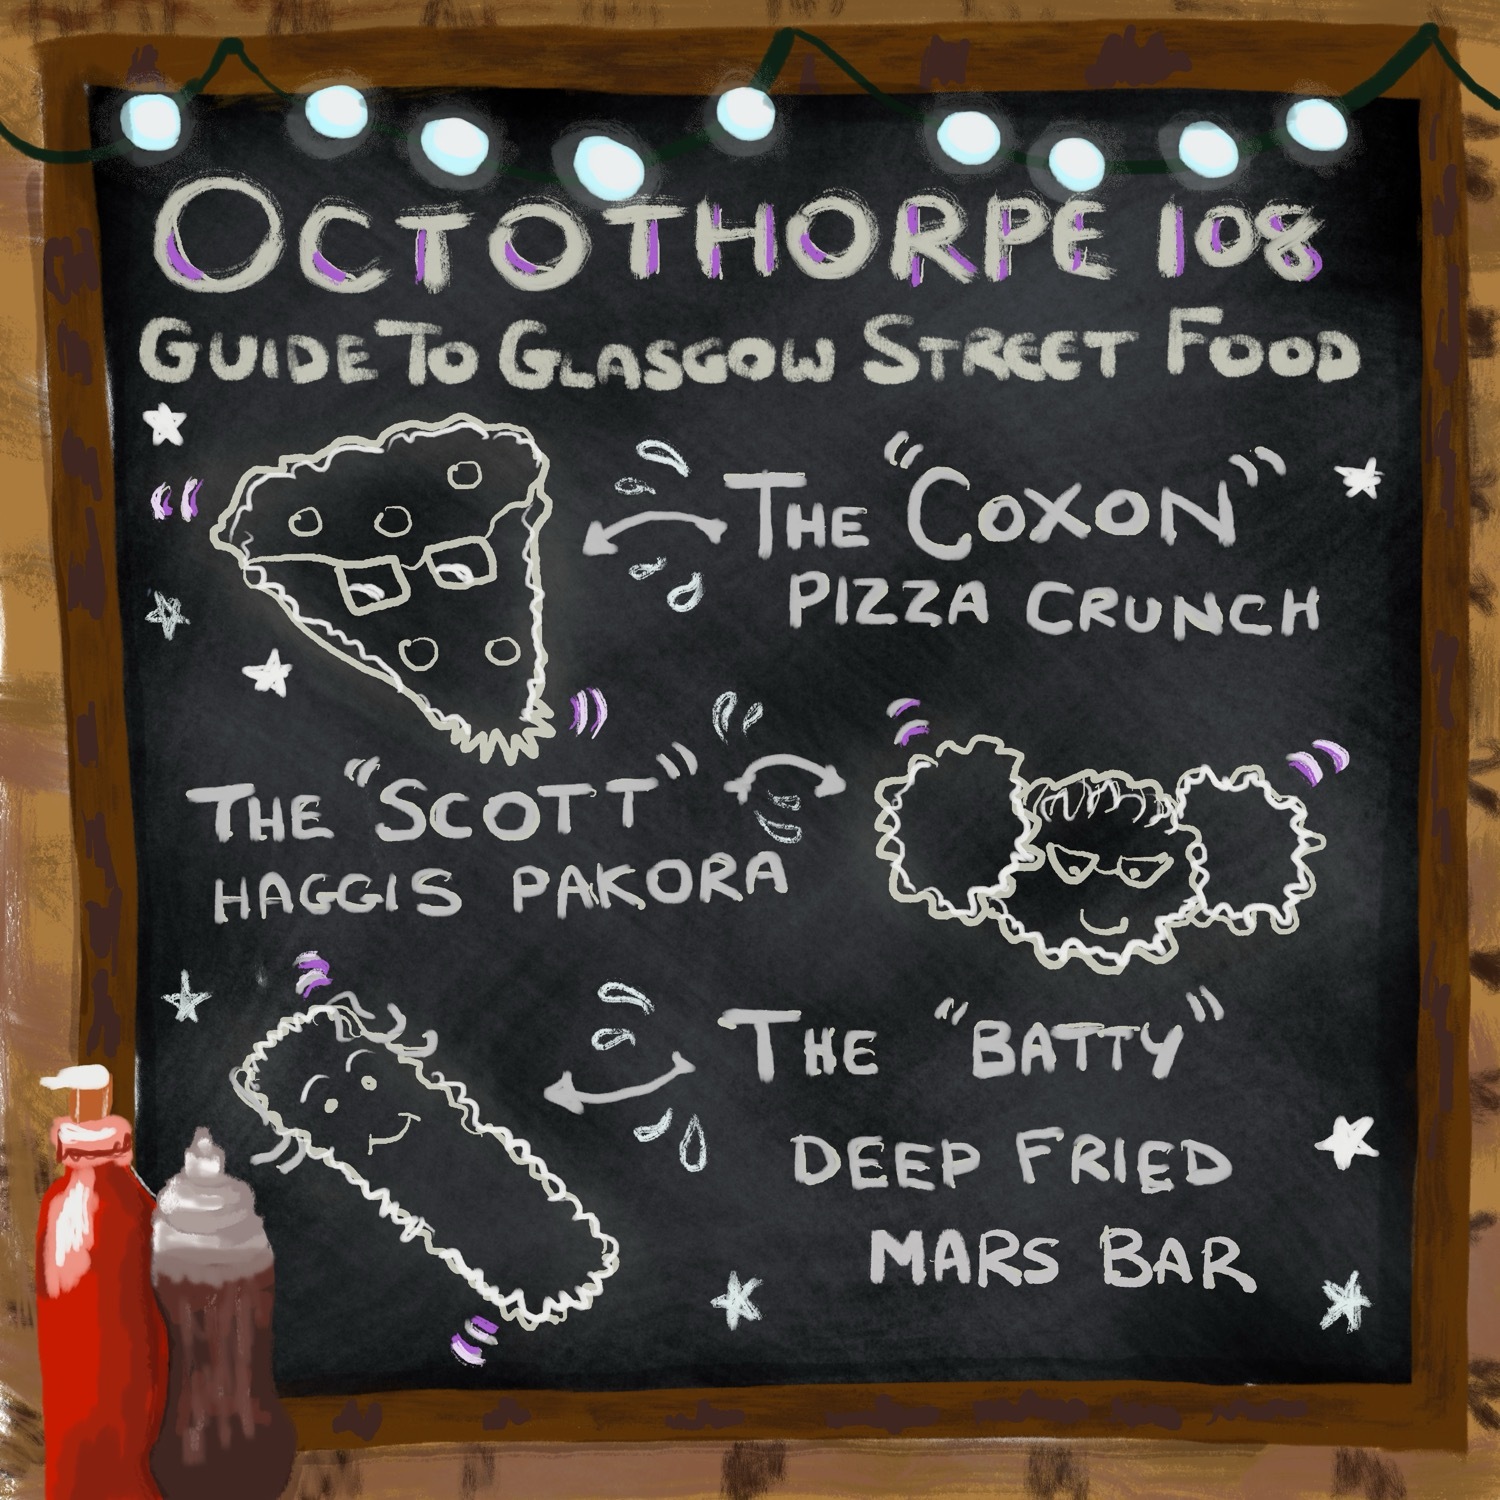 OCTOTHORPE 108
GUIDE TO GLASGOW STREET FOOD
THE "COXON"
PIZZA CRUNCH
THE "SCOTT"
HAGGIS PAKORA
THE "BATTY"
DEEP FRIED
MARS BAR